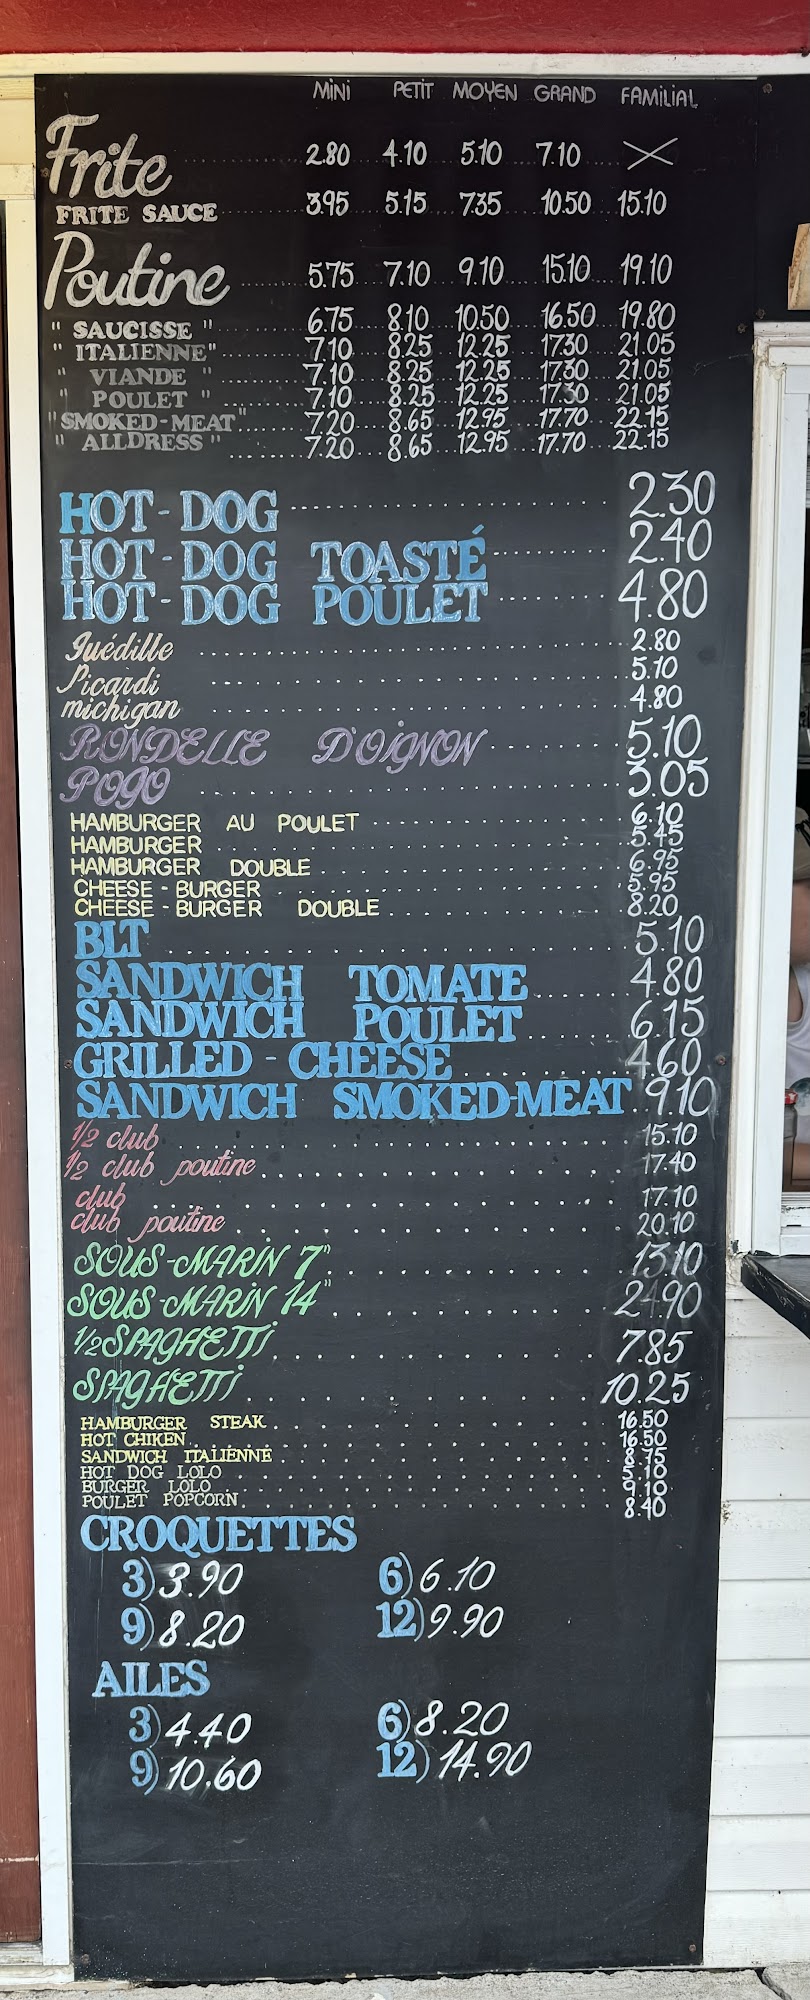 MINI PETIT MOYEN GRAND FAMILIAL
Frite 2.80 4.10 5.10 7.10
FRITE SAUCE 3.95 5.15 7.35 10.50 15.10
Poutine 5.75 7.10 9.10 15.10 19.10
" SAUCISSE " 6.75 8.10 10.50 16.50 19.80
" ITALIENNE" 7.10 8.25 12.25 17.30 21.05
" VIANDE " 7.10 8.25 12.25 17.30 21.05
" POULET " 7.10 8.25 12.25 17.30 21.05
"SMOKED-MEAT" 7.20 8.65 12.95 17.70 22.15
" ALLDRESS " 7.20 8.65 12.95 17.70 22.15
HOT-DOG 2.30
HOT-DOG TOASTÉ 2.40
HOT-DOG POULET 4.80
guédille 2.80
Picardi 5.10
michigan 4.80
RONDELLE D'OIGNON 5.10
POGO 3.05
HAMBURGER AU POULET 6.10
HAMBURGER 5.45
HAMBURGER DOUBLE 6.95
CHEESE-BURGER 5.95
CHEESE-BURGER DOUBLE 8.20
BLT 5.10
SANDWICH TOMATE 4.80
SANDWICH POULET 6.15
GRILLED-CHEESE 4.60
SANDWICH SMOKED-MEAT 9.10
1/2 club 15.10
1/2 club poutine 17.40
club 17.10
club poutine 20.10
SOUS-MARIN 7" 13.10
SOUS-MARIN 14" 24.90
1/2 SPAGHETTI 7.85
SPAGHETTI 10.25
HAMBURGER STEAK 16.50
HOT CHIKEN 16.50
SANDWICH ITALIENNE 8.75
HOT DOG LOLO 5.10
BURGER LOLO 9.10
POULET POPCORN 8.40
CROQUETTES
3) 3.90 6) 6.10
9) 8.20 12) 9.90
AILES
3) 4.40 6) 8.20
9) 10.60 12) 14.90